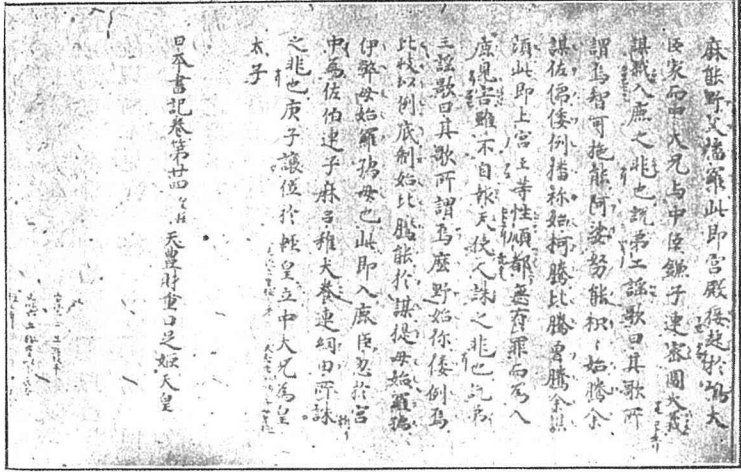 麻能野父播羅此即宮殿接起於嶋大
臣家而中大兄与中臣鎌子連密圖大義
謀戮入鹿之兆也説第二謡歌曰其歌所
謂烏智可拕能阿娑努能枳々始騰余
謀佐儒倭例播祢始柯騰比騰曽騰余謀
須此即上宮王等性順都無有罪而為入
鹿見害雖不自報天使人誅之兆也説第
三謡歌曰其歌所謂烏麼野始你倭例烏
比岐以例底制始比騰能於謀提母始羅孺
伊弊母始羅孺母也此即入鹿臣忽於宮
中為佐伯連子麻呂稚犬養連網田所誅
之兆也庚子譲位於軽皇立中大兄為皇
太子
日本書記巻第廿四 天豊財重日足姫天皇